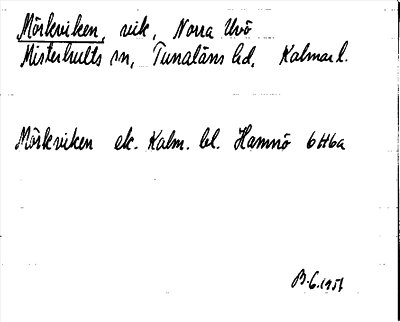 Mörkviken, vik, Norra Uvö
Misterhults sn, Tunaläns hd, Kalmar l.
Mörkviken ek. Kalm. bl. Hamnö 6H6a
B.G. 1951